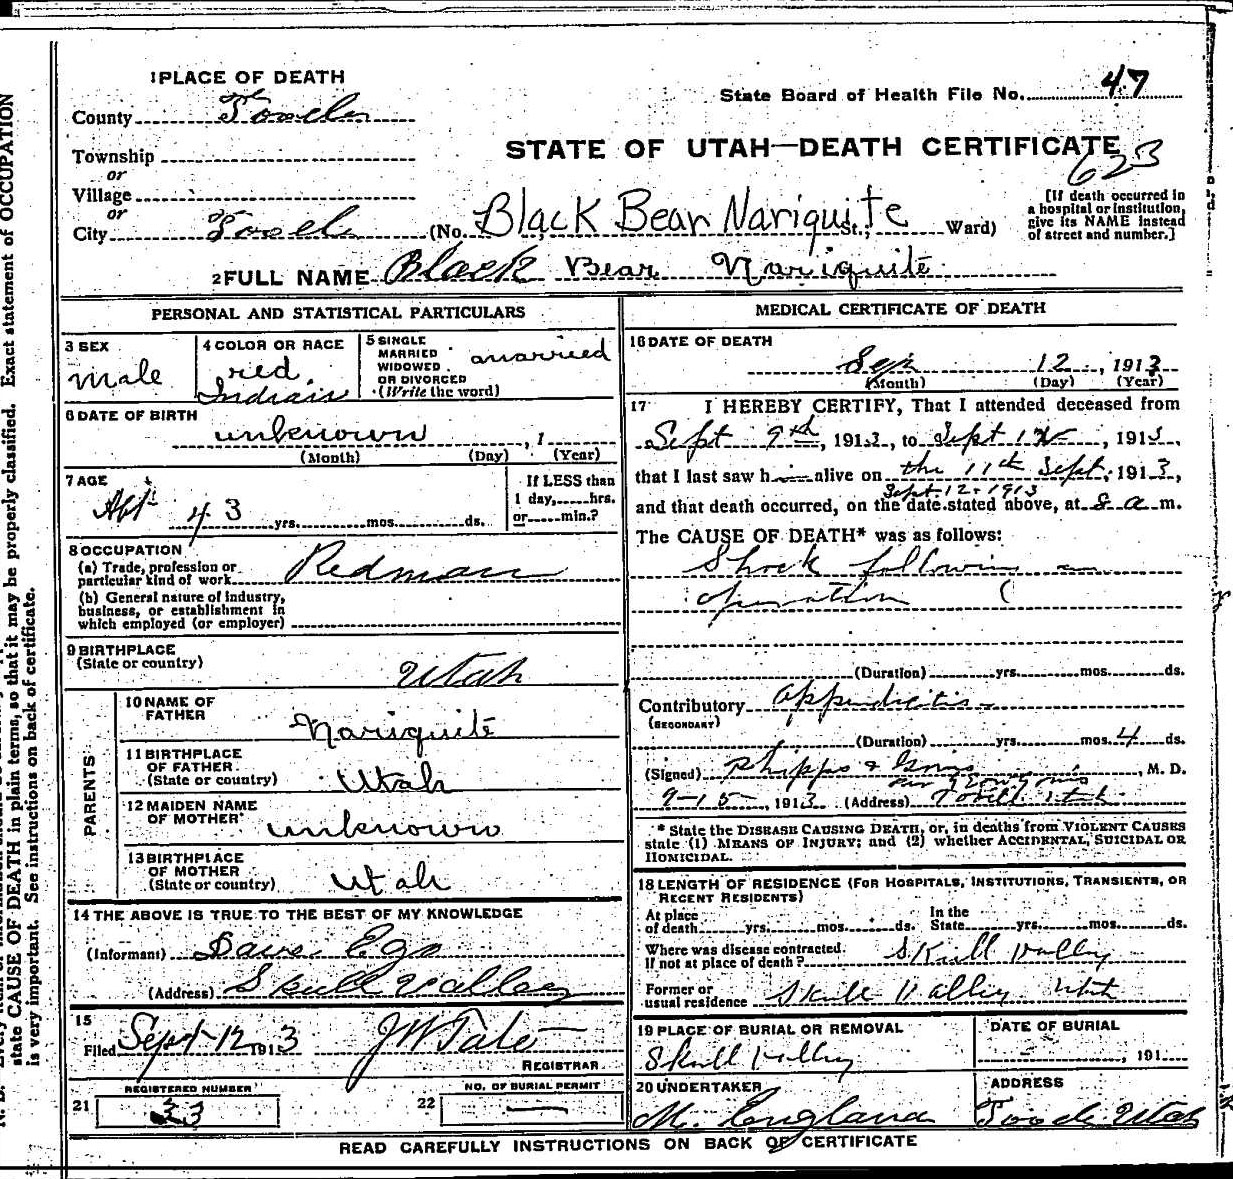 1 PLACE OF DEATH
State Board of Health File No. 47
County Tooele
STATE OF UTAH—DEATH CERTIFICATE
623
Township
or
Village
or
City Tooele (No. Black Bear Nariquite St.; Ward)
[If death occurred in
a hospital or institution,
give its NAME instead
of street and number.]
2 FULL NAME Black Bear Nariquite
PERSONAL AND STATISTICAL PARTICULARS
3 SEX
Male
4 COLOR OR RACE
red
Indian
5 SINGLE
MARRIED
WIDOWED
OR DIVORCED
(Write the word)
married
6 DATE OF BIRTH
unknown , 1
(Month) (Day) (Year)
7 AGE
Abt 43 yrs. mos. ds.
If LESS than
1 day, hrs.
or min.?
8 OCCUPATION
(a) Trade, profession or
particular kind of work Redman
(b) General nature of industry,
business, or establishment in
which employed (or employer)
9 BIRTHPLACE
(State or country)
Utah
PARENTS
10 NAME OF
FATHER
Nariquite
11 BIRTHPLACE
OF FATHER
(State or country)
Utah
12 MAIDEN NAME
OF MOTHER
unknown
13 BIRTHPLACE
OF MOTHER
(State or country)
Utah
14 THE ABOVE IS TRUE TO THE BEST OF MY KNOWLEDGE
(Informant) Dave Ego
(Address) Skull Valley
15
Filed Sept 12 1913 J W Tate
REGISTRAR
REGISTERED NUMBER
21 33
NO. OF BURIAL PERMIT
22 —
MEDICAL CERTIFICATE OF DEATH
16 DATE OF DEATH
Sep 12, 1913
(Month) (Day) (Year)
17 I HEREBY CERTIFY, That I attended deceased from
Sept 9th, 1913, to Sept 12, 1913,
that I last saw h alive on the 11th Sept, 1913,
Sept. 12. 1913
and that death occurred, on the date stated above, at 8 a m.
The CAUSE OF DEATH* was as follows:
Shock following an
operation (
(Duration) yrs. mos. ds.
Contributory appendicitis
(SECONDARY)
(Duration) yrs. mos. 4 ds.
(Signed) Phipps & , M. D.
9-15, 1913 (Address) Tooele Utah
* State the DISEASE CAUSING DEATH, or, in deaths from VIOLENT CAUSES
state (1) MEANS OF INJURY; and (2) whether ACCIDENTAL, SUICIDAL OR
HOMICIDAL.
18 LENGTH OF RESIDENCE (FOR HOSPITALS, INSTITUTIONS, TRANSIENTS, OR
RECENT RESIDENTS)
At place
of death yrs. mos. ds.
In the
State yrs. mos. ds.
Where was disease contracted.
If not at place of death? Skull Valley
Former or
usual residence Skull Valley Utah
19 PLACE OF BURIAL OR REMOVAL
Skull Valley
DATE OF BURIAL
, 191
20 UNDERTAKER
M. England
ADDRESS
Tooele Utah
READ CAREFULLY INSTRUCTIONS ON BACK OF CERTIFICATE
state CAUSE OF DEATH in plain terms, so that it may be properly classified. Exact statement of OCCUPATION
is very important. See instructions on back of certificate.